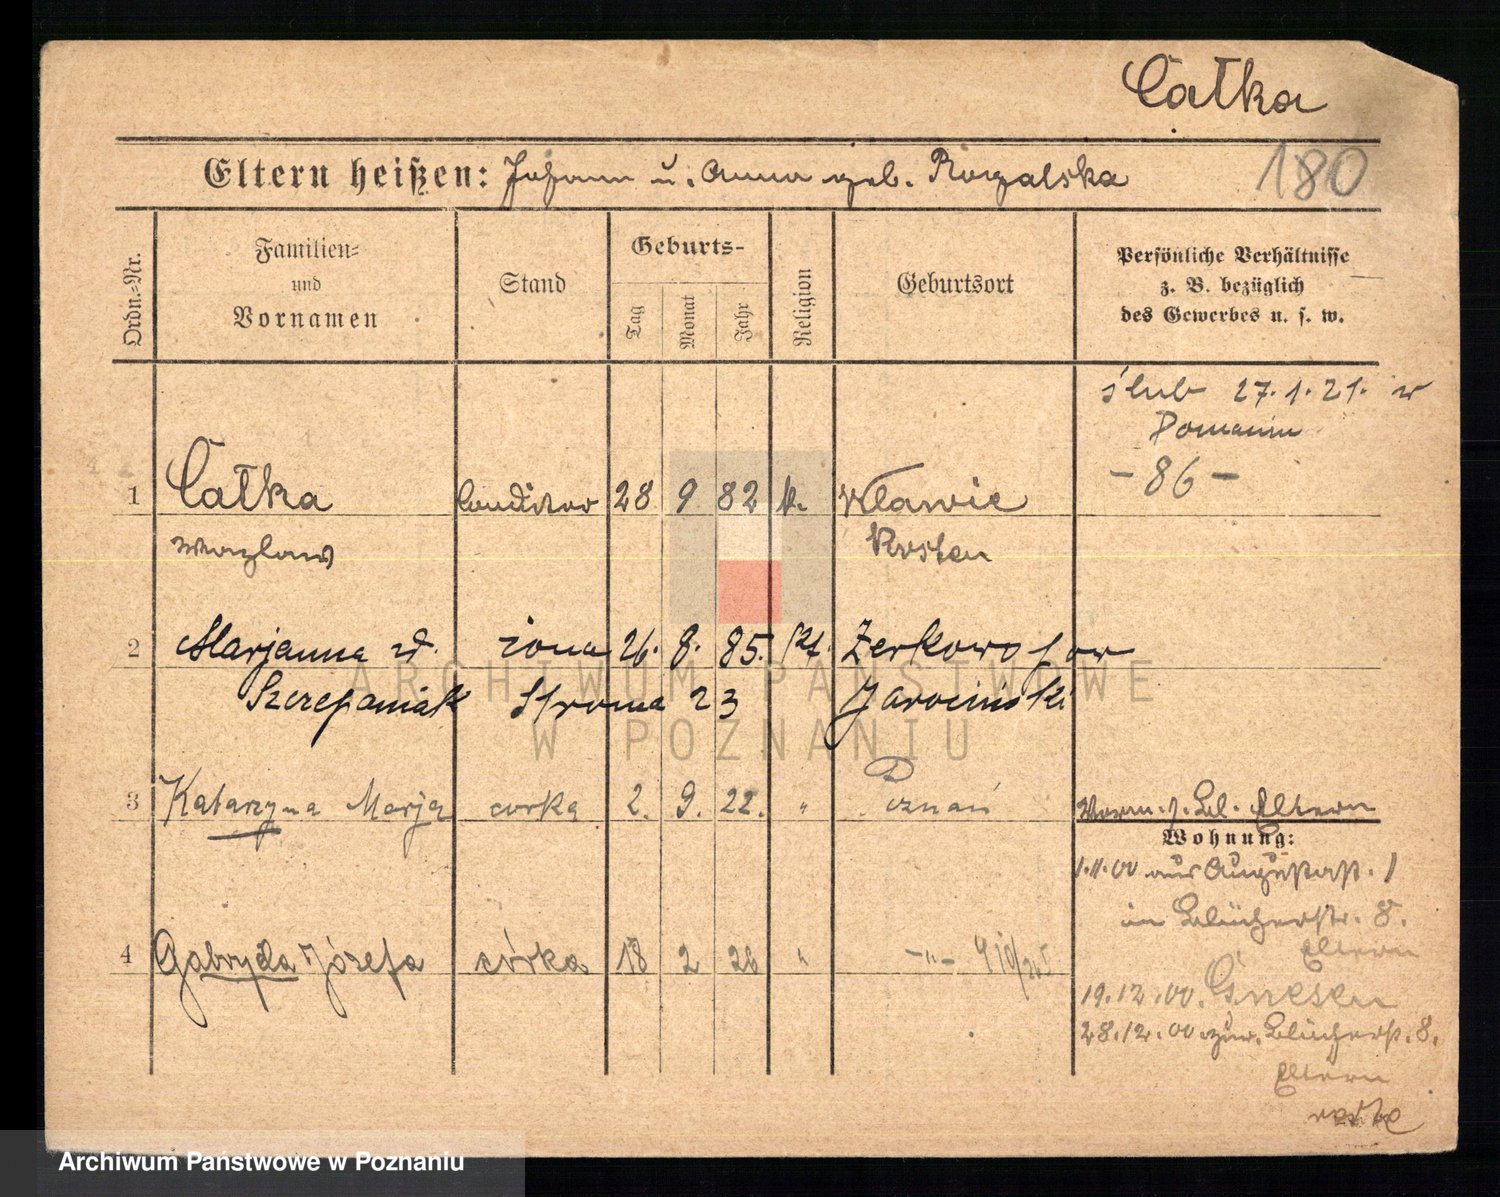 Całka
Eltern heißen: Johann u. Anna geb. Rogalska
180
Ordn.-Nr.
Familien- und Vornamen
Stand
Geburts-
Tag
Monat
Jahr
Religion
Geburtsort
Persönliche Verhältnisse
z. B. bezüglich
des Gewerbes u. s. w.
ślub 27.1.21. w
Poznaniu
- 86 -
1 Całka Conditor 28 9 82 k. Kławie
Wazlaw Kosten
2 Marjanna żona 26. 8. 85. kt. Żerkowo pow
Szczepaniak Stroma 23 Jarociński
3 Katarzyna Marja corka 2. 9. 22. " Poznań
Eltern
Wohnung:
1.11.00 aus Augustastr. 1
in Blücherstr. 8.
Eltern
4 Gabryela Józefa córka 18 2 26 " -"-
19.12.00. Gnesen
28.12.00 zur. Blücherstr. 8.
Eltern
ARCHIWUM PAŃSTWOWE
W POZNANIU
Archiwum Państwowe w Poznaniu